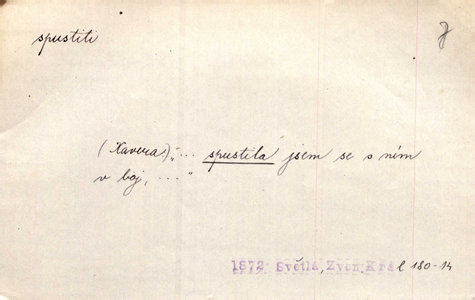 spustiti
(Xavera) „... spustila jsem se s ním
v boj, ..."
1872 Světlá, Zvon. Král 180-14